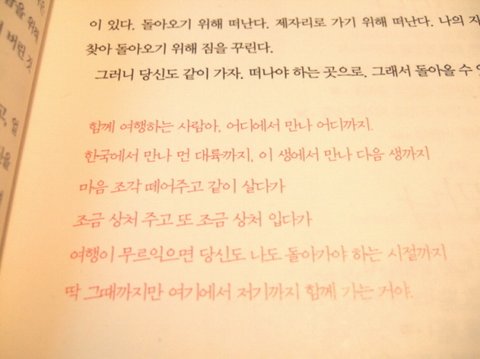 이 있다. 돌아오기 위해 떠난다. 제자리로 가기 위해 떠난다. 나의 자
찾아 돌아오기 위해 짐을 꾸린다.
그러니 당신도 같이 가자. 떠나야 하는 곳으로, 그래서 돌아올 수 있
함께 여행하는 사람아, 어디에서 만나 어디까지.
한국에서 만나 먼 대륙까지, 이 생에서 만나 다음 생까지
마음 조각 떼어주고 같이 살다가
조금 상처 주고 또 조금 상처 입다가
여행이 무르익으면 당신도 나도 돌아가야 하는 시절까지
딱 그때까지만 여기에서 저기까지 함께 가는 거야.